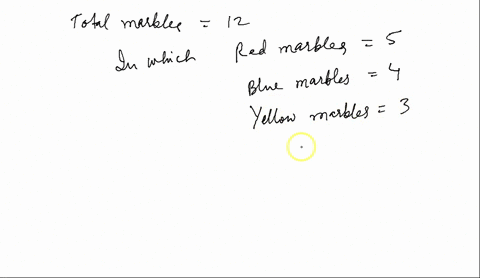 Total marbles = 12
In which Red marbles = 5
Blue marbles = 4
Yellow marbles = 3